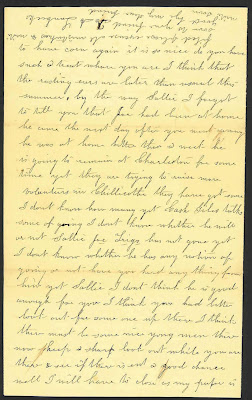 to have corn again it is so nice do you have
such a treat where you are I think that
the roasting ears are later than usual this
summer, by the way Sallie I forgot
to tell you that had been at home
he came the next day after you went away
he was at home better than a week he
is going to remain at Charleston for some
time yet they are trying to raise more
volunteers in Chillicothe they have got some
I dont know how many yet Cash Siles talks
some of going I dont know whether he will
or not Sallie has not gone yet
I dont know whether he has any notion of
going or not have you had any thing from
him yet Sallie I dont think he is good
enough for you I think you had better
look out for some one up there I think
there must be some nice young men there
now keep a sharp look out while you are
there & see if there is not a good chance
well I will have to close as my paper is